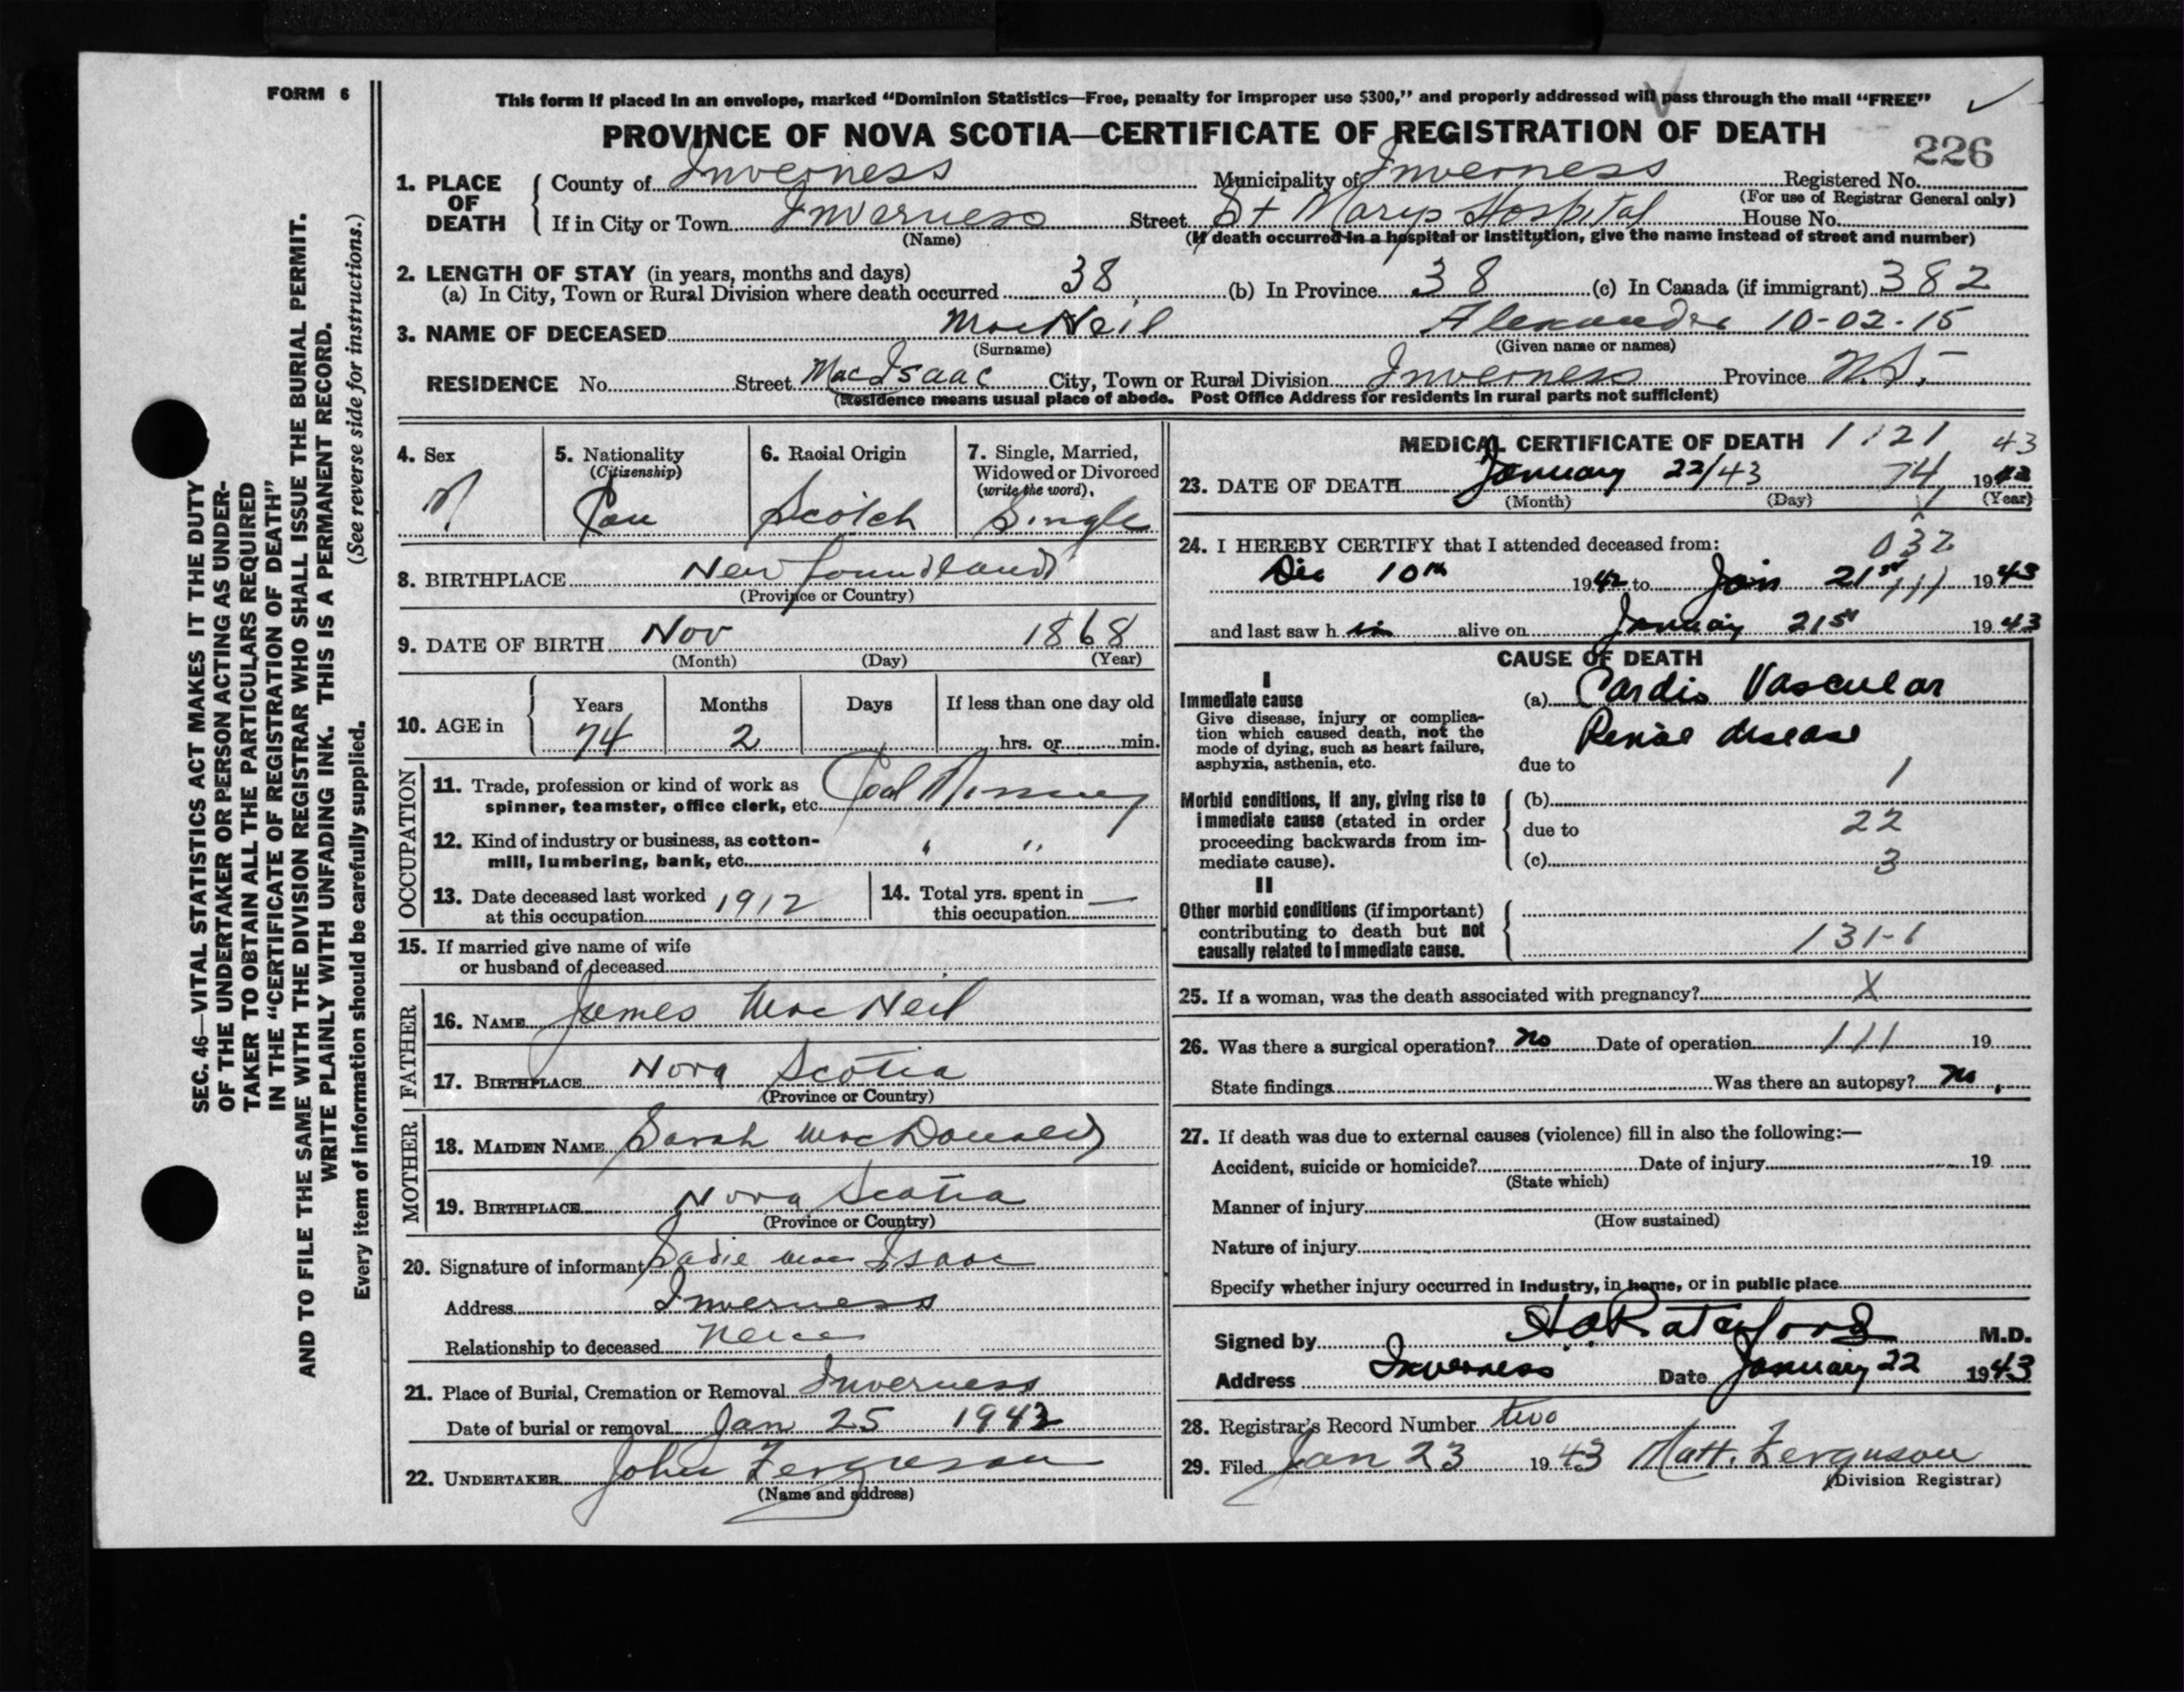 FORM 6
This form if placed in an envelope, marked “Dominion Statistics—Free, penalty for improper use $300,” and properly addressed will pass through the mail “FREE”
PROVINCE OF NOVA SCOTIA—CERTIFICATE OF REGISTRATION OF DEATH
226
1. PLACE OF DEATH { County of Inverness Municipality of Inverness Registered No.
(For use of Registrar General only)
If in City or Town Inverness Street St Marys Hospital House No.
(Name) (If death occurred in a hospital or institution, give the name instead of street and number)
2. LENGTH OF STAY (in years, months and days)
(a) In City, Town or Rural Division where death occurred 38 (b) In Province 38 (c) In Canada (if immigrant) 382
3. NAME OF DECEASED MacNeil Alexander 10-02-15
(Surname) (Given name or names)
RESIDENCE No. Street MacIsaac City, Town or Rural Division Inverness Province N.S.
(Residence means usual place of abode. Post Office Address for residents in rural parts not sufficient)
4. Sex M
5. Nationality (Citizenship) Can
6. Racial Origin Scotch
7. Single, Married, Widowed or Divorced (write the word). Single
8. BIRTHPLACE Newfoundland
(Province or Country)
9. DATE OF BIRTH Nov 1868
(Month) (Day) (Year)
10. AGE in { Years 74 Months 2 Days If less than one day old hrs. or min.
OCCUPATION
11. Trade, profession or kind of work as
spinner, teamster, office clerk, etc. Coal
12. Kind of industry or business, as cotton-
mill, lumbering, bank, etc. " "
13. Date deceased last worked at this occupation 1912
14. Total yrs. spent in this occupation —
15. If married give name of wife
or husband of deceased
FATHER
16. NAME James MacNeil
17. BIRTHPLACE Nova Scotia
(Province or Country)
MOTHER
18. MAIDEN NAME Sarah MacDonald
19. BIRTHPLACE Nova Scotia
(Province or Country)
20. Signature of informant Sadie MacIsaac
Address Inverness
Relationship to deceased Neice
21. Place of Burial, Cremation or Removal Inverness
Date of burial or removal Jan 25 1943
22. UNDERTAKER John Ferguson
(Name and address)
MEDICAL CERTIFICATE OF DEATH 1 121 43
23. DATE OF DEATH January 22/43 74 19
(Month) (Day) (Year)
24. I HEREBY CERTIFY that I attended deceased from: 032
Dec 10th 1942 to Jan 21st 111 1943
and last saw h im alive on January 21st 1943
CAUSE OF DEATH
I
Immediate cause
Give disease, injury or complica-
tion which caused death, not the
mode of dying, such as heart failure,
asphyxia, asthenia, etc.
(a) Cardio Vascular
Renal disease
due to
1
Morbid conditions, if any, giving rise to
immediate cause (stated in order
proceeding backwards from im-
mediate cause).
(b)
due to 22
(c) 3
II
Other morbid conditions (if important)
contributing to death but not
causally related to immediate cause.
131-1
25. If a woman, was the death associated with pregnancy? X
26. Was there a surgical operation? no Date of operation 111 19
State findings Was there an autopsy? no.
27. If death was due to external causes (violence) fill in also the following:—
Accident, suicide or homicide? Date of injury 19
(State which)
Manner of injury
(How sustained)
Nature of injury
Specify whether injury occurred in industry, in home, or in public place
Signed by M.D.
Address Inverness Date January 22 1943
28. Registrar's Record Number two
29. Filed Jan 23 1943 Matt. Ferguson
(Division Registrar)
SEC. 46—VITAL STATISTICS ACT MAKES IT THE DUTY
OF THE UNDERTAKER OR PERSON ACTING AS UNDER-
TAKER TO OBTAIN ALL THE PARTICULARS REQUIRED
IN THE “CERTIFICATE OF REGISTRATION OF DEATH”
AND TO FILE THE SAME WITH THE DIVISION REGISTRAR WHO SHALL ISSUE THE BURIAL PERMIT.
WRITE PLAINLY WITH UNFADING INK. THIS IS A PERMANENT RECORD.
Every item of information should be carefully supplied. (See reverse side for instructions.)